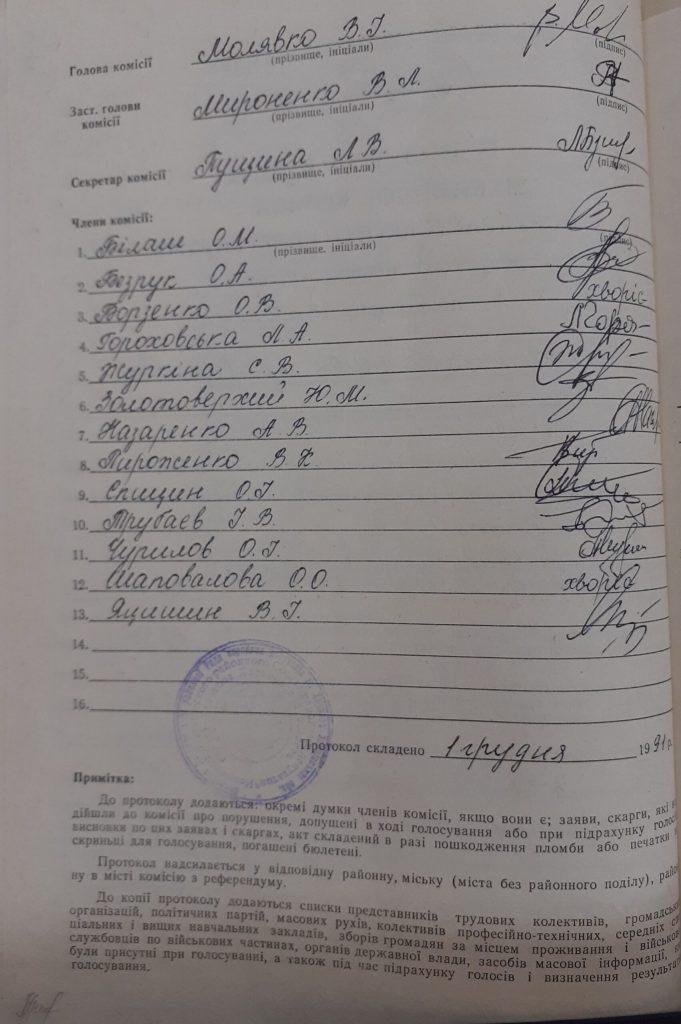 Голова комісії Молявко В.І.
(прізвище, ініціали) (підпис)
Заст. голови
комісії Мироненко В.Л.
(прізвище, ініціали) (підпис)
Секретар комісії Пущина Л.В.
(прізвище, ініціали) (підпис)
Члени комісії:
1. Білаш О.М.
(прізвище, ініціали) (підпис)
2. Безрук О.А.
3. Борзенко О.В. хворіє
4. Гороховська Л.А.
5. Журкіна С.В.
6. Золотоверхий Ю.М.
7. Назаренко А.В.
8. Пироженко В.
9. Спицин О.І.
10. Трубаєв І.В.
11. Чурилов О.І.
12. Шаповалова О.О. хворіє
13. Яцишин В.І.
14.
15.
16.
Протокол складено 1 грудня 1991 р.
Примітка:
До протоколу додаються: окремі думки членів комісії, якщо вони є; заяви, скарги, які
дійшли до комісії про порушення, допущені в ході голосування або при підрахунку
висновки по цих заявах і скаргах, акт складений в разі пошкодження пломби або печатки
скриньці для голосування, погашені бюлетені.
Протокол надсилається у відповідну районну, міську (міста без районного поділу),
ну в місті комісію з референдуму.
До копії протоколу додаються списки представників трудових колективів,
організацій, політичних партій, масових рухів, колективів професійно-технічних, середніх
ціальних і вищих навчальних закладів, зборів громадян за місцем проживання і
службовців по військових частинах, органів державної влади, засобів масової інформації,
були присутні при голосуванні, а також під час підрахунку голосів і визначення
голосування.